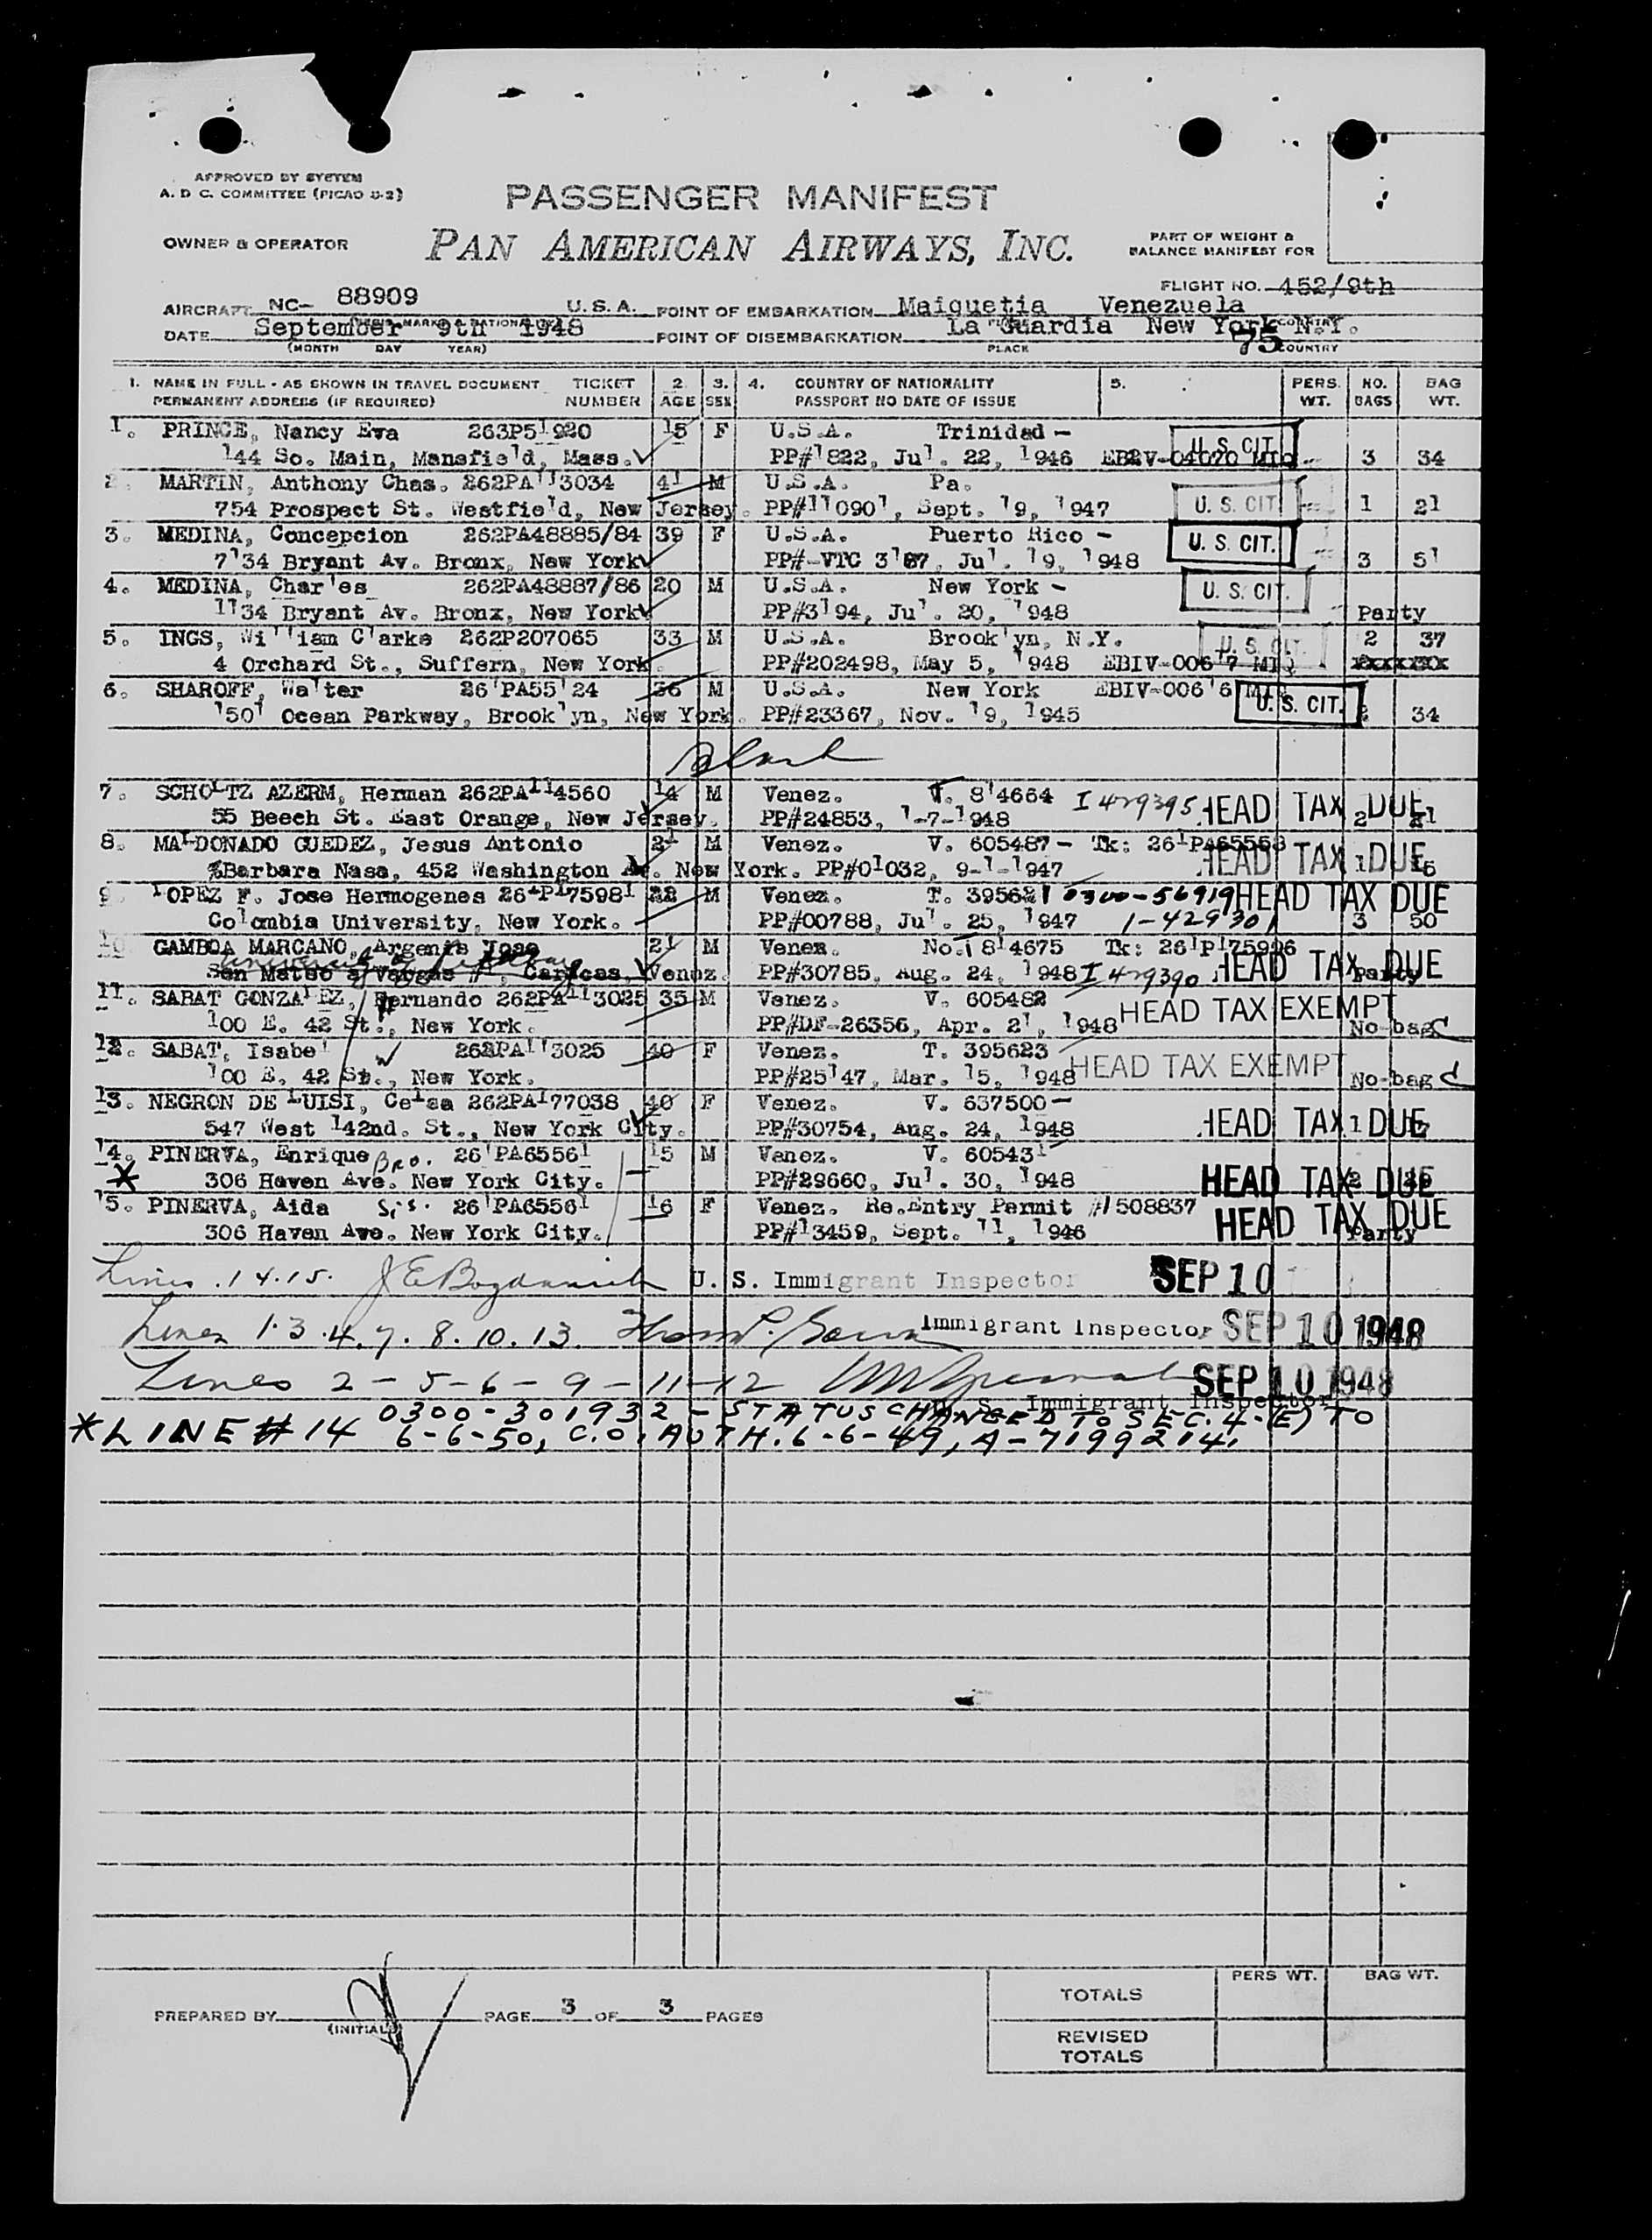 APPROVED BY SYSTEM
A. D C. COMMITTEE (PICAO D-2)
PASSENGER MANIFEST
OWNER & OPERATOR
PAN AMERICAN AIRWAYS, INC.
PART OF WEIGHT &
BALANCE MANIFEST FOR
FLIGHT NO. 452/9th
AIRCRAFT NC- 88909 U.S.A. POINT OF EMBARKATION Maiquetia Venezuela
DATE September 9th 1948 POINT OF DISEMBARKATION La Guardia New York N.Y.
(MONTH DAY YEAR) PLACE 75 COUNTRY
1. NAME IN FULL - AS SHOWN IN TRAVEL DOCUMENT TICKET 2. 3. 4. COUNTRY OF NATIONALITY 5. PERS. NO. BAG
PERMANENT ADDRESS (IF REQUIRED) NUMBER AGE SEX PASSPORT NO DATE OF ISSUE WT. BAGS WT.
1. PRINCE, Nancy Eva 263P51920 15 F U.S.A. Trinidad - U.S. CIT.
144 So. Main, Mansfield, Mass. PP#1822, Jul. 22, 1946 3 34
2. MARTIN, Anthony Chas. 262PA113034 41 M U.S.A. Pa.
754 Prospect St. Westfield, New Jersey. PP#110901, Sept. 19, 1947 U. S. CIT 1 21
3. MEDINA, Concepcion 262PA48885/84 39 F U.S.A. Puerto Rico - U. S. CIT.
7134 Bryant Av. Bronx, New York PP#-VTC 3187, Jul. 19, 1948 3 51
4. MEDINA, Charles 262PA48887/86 20 M U.S.A. New York - U. S. CIT.
1134 Bryant Av. Bronx, New York PP#3194, Jul. 20, 1948 Party
5. INGS, William Clarke 262P207065 33 M U.S.A. Brooklyn, N.Y. U. S. CIT. 2 37
4 Orchard St., Suffern, New York. PP#202498, May 5, 1948 EBIV-00617 MIQ xxxxxxx
6. SHAROFF, Walter 261PA55124 36 M U.S.A. New York EBIV-00616 U. S. CIT.
1501 Ocean Parkway, Brooklyn, New York. PP#23367, Nov. 19, 1945 34
7. SCHOLTZ AZERM, Herman 262PA114560 14 M Venez. V. 814664 I 429395 HEAD TAX DUE
55 Beech St. East Orange, New Jersey. PP#24853, 1-7-1948 2 21
8. MALDONADO GUEDEZ, Jesus Antonio 21 M Venez. V. 605487 - Tk: 261PA65558
%Barbara Nasa, 452 Washington Av. New York. PP#01032, 9-1-1947 HEAD TAX DUE 1
9. LOPEZ F. Jose Hermogenes 261P175981 22 M Venez. T. 395621 0300-56919 HEAD TAX DUE
Colombia University, New York. PP#00788, Jul. 25, 1947 1-429301 3 50
10. GAMBOA MARCANO, Argenis Jose 21 M Venez. No. 814675 Tk: 261P175996
San Mateo a Vargas #, Caracas, Venez. PP#30785, Aug. 24, 1948 I 429390 HEAD TAX DUE Party
11. SABAT GONZALEZ, Hernando 262PA113025 35 M Venez. V. 605482 HEAD TAX EXEMPT
100 E. 42 St., New York. PP#DF-26356, Apr. 21, 1948 No bag
12. SABAT, Isabel 262PA113025 40 F Venez. T. 395623 HEAD TAX EXEMPT
100 E. 42 St., New York. PP#25147, Mar. 15, 1948 No bag
13. NEGRON DE LUISI, Celsa 262PA177038 40 F Venez. V. 637500 -
547 West 142nd. St., New York City. PP#30754, Aug. 24, 1948 HEAD TAX DUE 1
14. PINERVA, Enrique Bro. 261PA65561 15 M Venez. V. 605431
* 306 Haven Ave. New York City. PP#29660, Jul. 30, 1948 HEAD TAX DUE 2
15. PINERVA, Aida Sis. 261PA65561 16 F Venez. Re.Entry Permit #1508837
306 Haven Ave. New York City. PP#13459, Sept. 11, 1946 HEAD TAX DUE Party
Lines . 14.15. U. S. Immigrant Inspector SEP 10
Lines 1.3.4.7.8.10.13. Immigrant Inspector SEP 10 1948
Lines 2-5-6-9-11-12 SEP 10 1948
U. S. Immigrant Inspector
0300-301932 - STATUS CHANGED TO SEC. 4-(E) TO
* LINE # 14 6-6-50, C.O. AUTH. 6-6-49, A-7199214.
PREPARED BY (INITIALS) PAGE 3 OF 3 PAGES
PERS WT. BAG WT.
TOTALS
REVISED
TOTALS